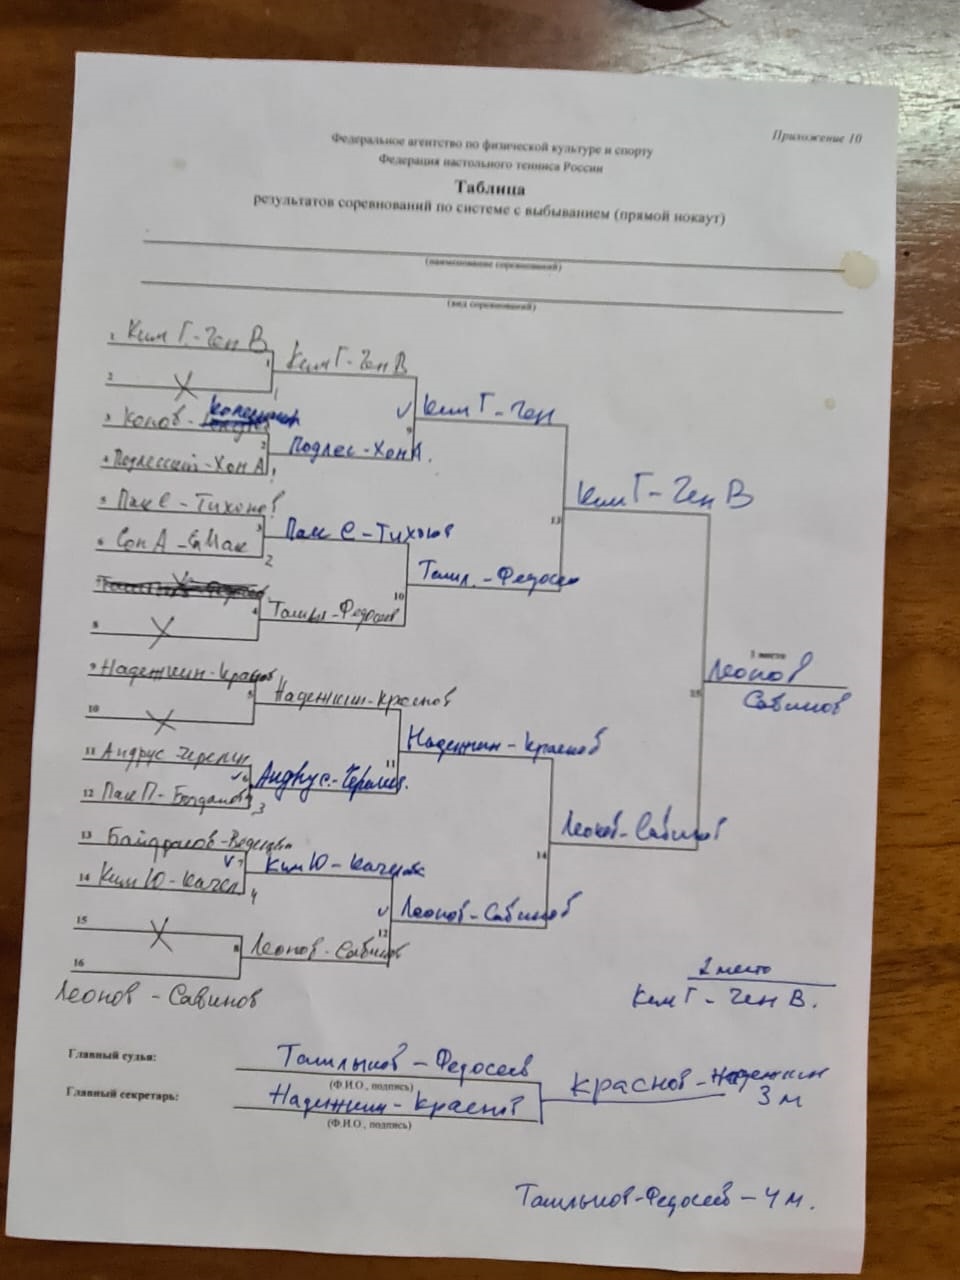 Приложение 10
Федеральное агентство по физической культуре и спорту
Федерация настольного тенниса России
Таблица
результатов соревнований по системе с выбыванием (прямой нокаут)
(наименование соревнований)
(вид соревнований)
1 Ким Г.-Ген В
1
Ким Г-Ген В
2 X
3 Конов-
2
Подлес-ХонА.
4 Подлесский-Хон А
9
Ким Г-Ген
5 Пак С-Тихонов
3
Пак С-Тихонов
6 Сон А-
2
10
Ташл.-Федосеев
4
Ташлы-Федосеев
8 X
13
Ким Г-Ген В
9 Надежкин-Краснов
5
Надежкин-Краснов
10 X
11
Надежкин-Краснов
11 Андрус-Черепин
6
12 Пак П-Богданов
3
13
7
Ким Ю-
14 Ким Ю-
4
12
Леонов-Савинов
15 X
8
Леонов-Савинов
16
Леонов-Савинов
14
Леонов-Савинов
15
1 место
Леонов
Савинов
2 место
Ким Г-Ген В.
Главный судья:
Ташлыков-Федосеев
(Ф.И.О., подпись)
Главный секретарь:
Надежкин-Краснов
(Ф.И.О., подпись)
Краснов-Надежкин
3 м
Ташлыков-Федосеев-4 м.